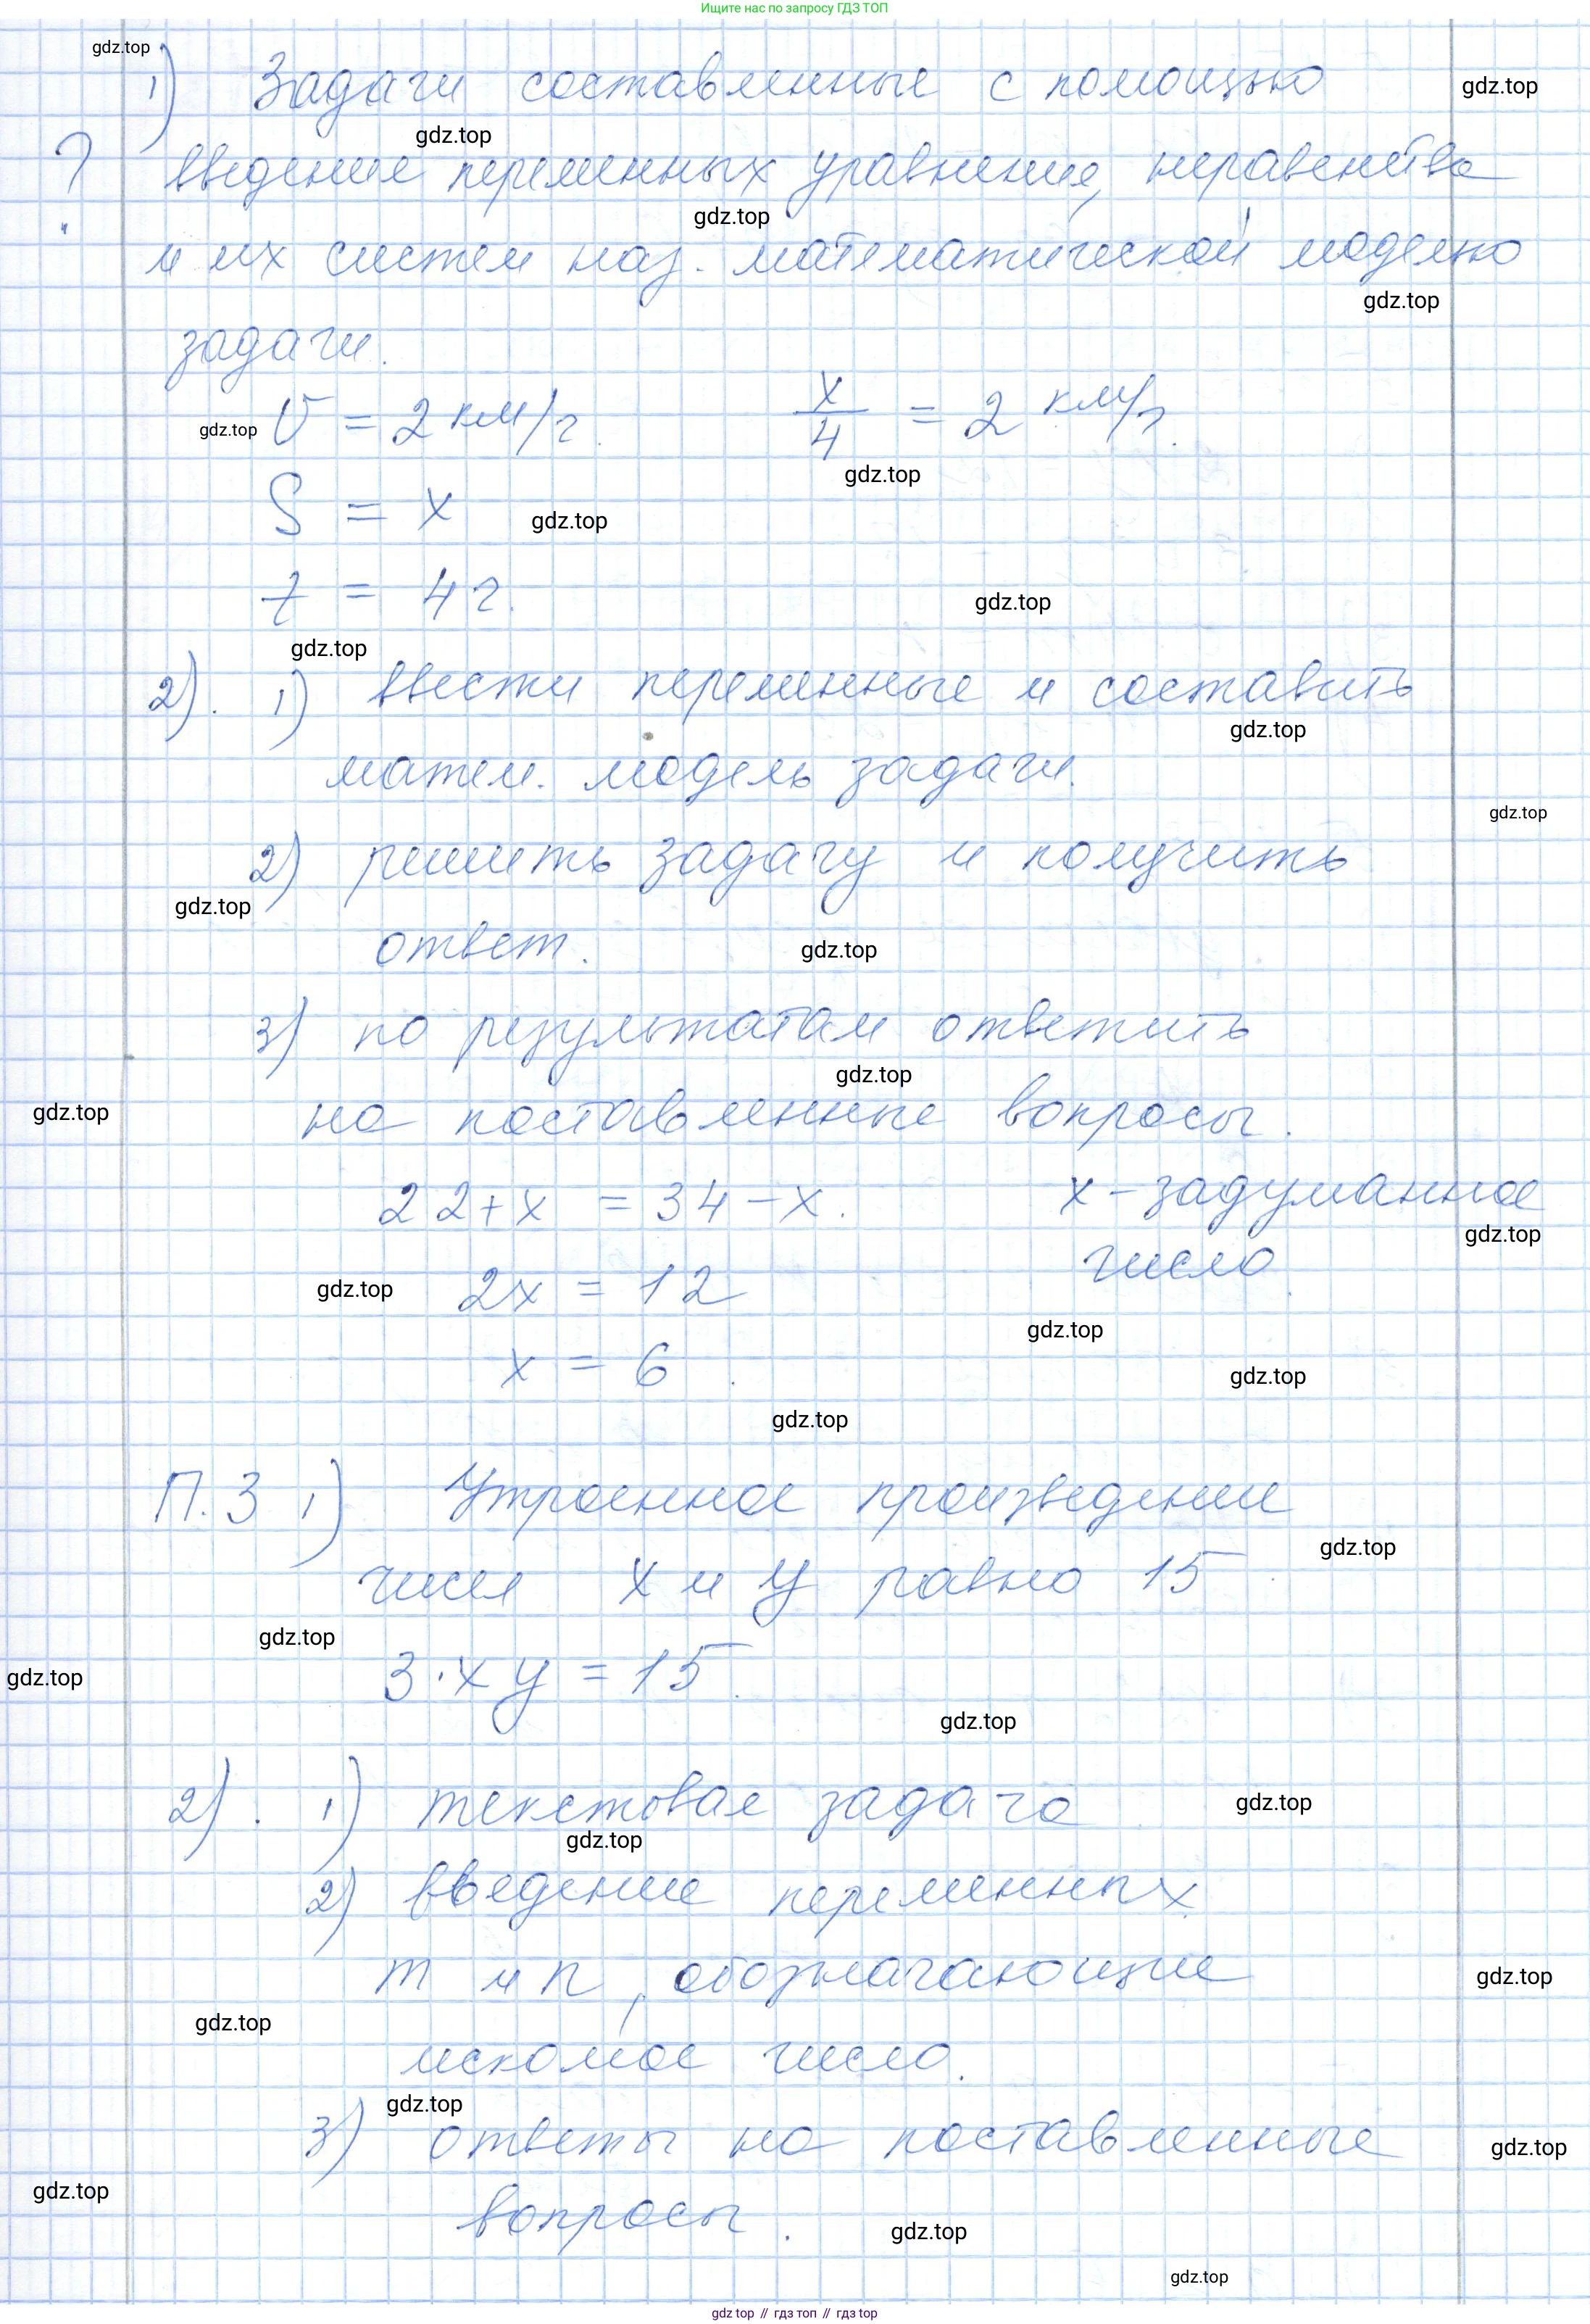 Ищите нас по запросу ГДЗ ТОП
gdz.top
1) Задачи составленные с помощью
gdz.top
gdz.top
? введение переменных уравнение, неравенства
gdz.top
и их систем наз. математической моделью
gdz.top
задачи.
gdz.top
v = 2 км/ч. x/4 = 2 км/ч.
gdz.top
S = x
gdz.top
t = 4 ч.
gdz.top
gdz.top
2). 1) ввести переменные и составить
gdz.top
матем. модель задачи.
gdz.top
2) решить задачу и получить
gdz.top
ответ.
gdz.top
3) по результатам ответить
gdz.top
gdz.top
на поставленные вопросы.
22+x = 34-x. x - задуманное
gdz.top
число.
gdz.top
2x = 12
gdz.top
x = 6.
gdz.top
gdz.top
П.3 1) Утроенное произведение
gdz.top
чисел x и y равно 15.
gdz.top
gdz.top
3·xy = 15.
gdz.top
2). 1) текстовая задача
gdz.top
gdz.top
2) введение переменных
m и n, обозначающие
gdz.top
gdz.top
искомое число.
gdz.top
3) ответы на поставленные
gdz.top
gdz.top
вопросы.
gdz.top
gdz.top
gdz top // гдз топ // гдз top